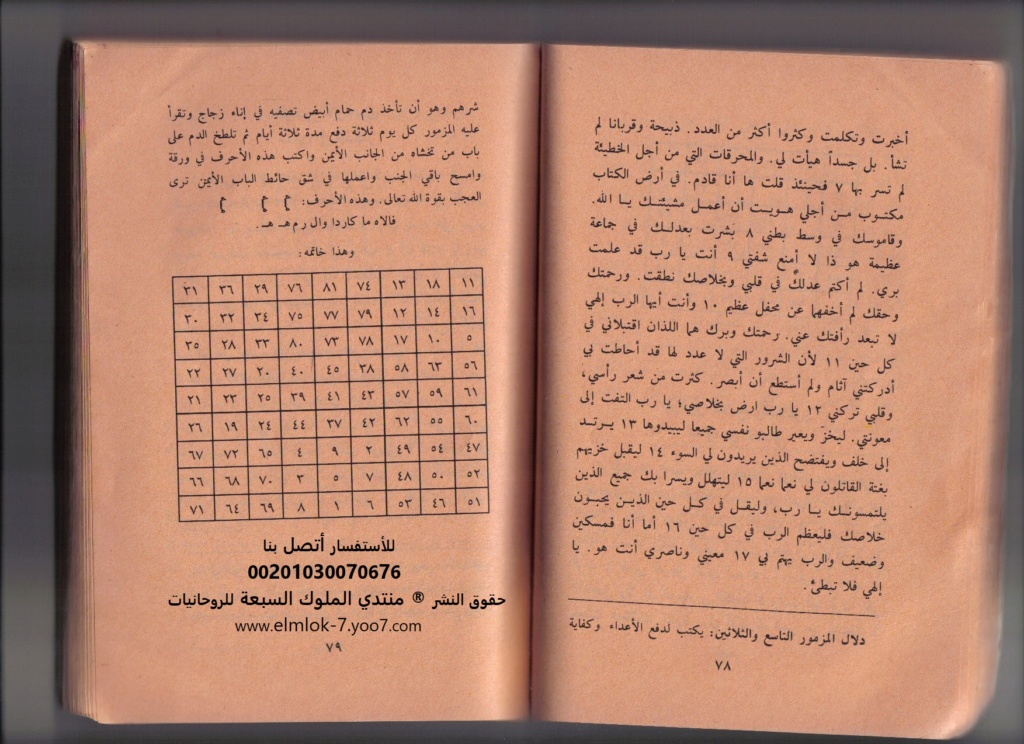 أخبرت وتكلمت وكثروا أكثر من العدد. ذبيحة وقربانا لم
تشأ. بل جسداً هيأت لي. والمحرقات التي من أجل الخطيئة
لم تسر بها ٧ فحينئذ قلت ها أنا قادم. في أرض الكتاب
مكتوب من أجلي هويت أن أعمل مشيئتك يا الله.
وقاموسك في وسط بطني ٨ بَشرت بعدلك في جماعة
عظيمة هو ذا لا أمنع شفتي ٩ أنت يا رب قد علمت
بري. لم أكتم عدلكَ في قلبي وبخلاصك نطقت. ورحمتك
وحقك لم أخفهما عن محفل عظيم ١٠ وأنت أيها الرب إلهي
لا تبعد رأفتك عني. رحمتك وبرك هما اللذان اقتبلاني في
كل حين ١١ لأن الشرور التي لا عدد لها قد أحاطت بي
أدركتني آثام ولم أستطع أن أبصر. كثرت من شعر رأسي،
وقلبي تركني ١٢ يا رب ارض بخلاصي؛ يا رب التفت إلى
معونتي. ليخزَ ويعير طالبو نفسي جميعا ليبيدوها ١٣ يرتد
إلى خلف ويفتضح الذين يريدون لي السوء ١٤ ليقبل خزيهم
بغتة القائلون لي نعما نعما ١٥ ليتهلل ويسرا بك جميع الذين
يلتمسونك يا رب، وليقل في كل حين الذين يحبون
خلاصك فليعظم الرب في كل حين ١٦ أما أنا فمسكين
وضعيف والرب يهتم بي ١٧ معيني وناصري أنت هو. يا
إلهي فلا تبطئ.
دلال المزمور التاسع والثلاثين: يكتب لدفع الأعداء وكفاية
٧٨
شرهم وهو أن تأخذ دم حمام أبيض تصفيه في إناء زجاج وتقرأ
عليه المزمور كل يوم ثلاثة دفع مدة ثلاثة أيام ثم تلطخ الدم على
باب من تخشاه من الجانب الأيمن واكتب هذه الأحرف في ورقة
وامسح باقي الجنب واعملها في شق حائط الباب الأيمن ترى
العجب بقوة الله تعالى. وهذه الأحرف:
فالاه ما كاردا وال رم هـ هـ.
وهذا خاتمه:
١١ ١٨ ١٣ ٧٤ ٨١ ٧٦ ٢٩ ٣٦ ٣١
١٦ ١٤ ١٢ ٧٩ ٧٧ ٧٥ ٣٤ ٣٢ ٣٠
٥ ١٠ ١٧ ٧٨ ٧٣ ٨٠ ٣٣ ٢٨ ٣٥
٥٦ ٦٣ ٥٨ ٣٨ ٤٥ ٤٠ ٢٠ ٢٧ ٢٢
٦١ ٥٩ ٥٧ ٤٣ ٤١ ٣٩ ٢٥ ٢٣ ٢١
٦٠ ٥٥ ٦٢ ٤٢ ٣٧ ٤٤ ٢٤ ١٩ ٢٦
٤٧ ٥٤ ٤٩ ٢ ٩ ٤ ٦٥ ٧٢ ٦٧
٥٢ ٥٠ ٤٨ ٧ ٥ ٣ ٧٠ ٦٨ ٦٦
٥١ ٤٦ ٥٣ ٦ ١ ٨ ٦٩ ٦٤ ٧١
للأستفسار أتصل بنا
00201030070676
حقوق النشر ® منتدي الملوك السبعة للروحانيات
www.elmlok-7.yoo7.com
٧٩